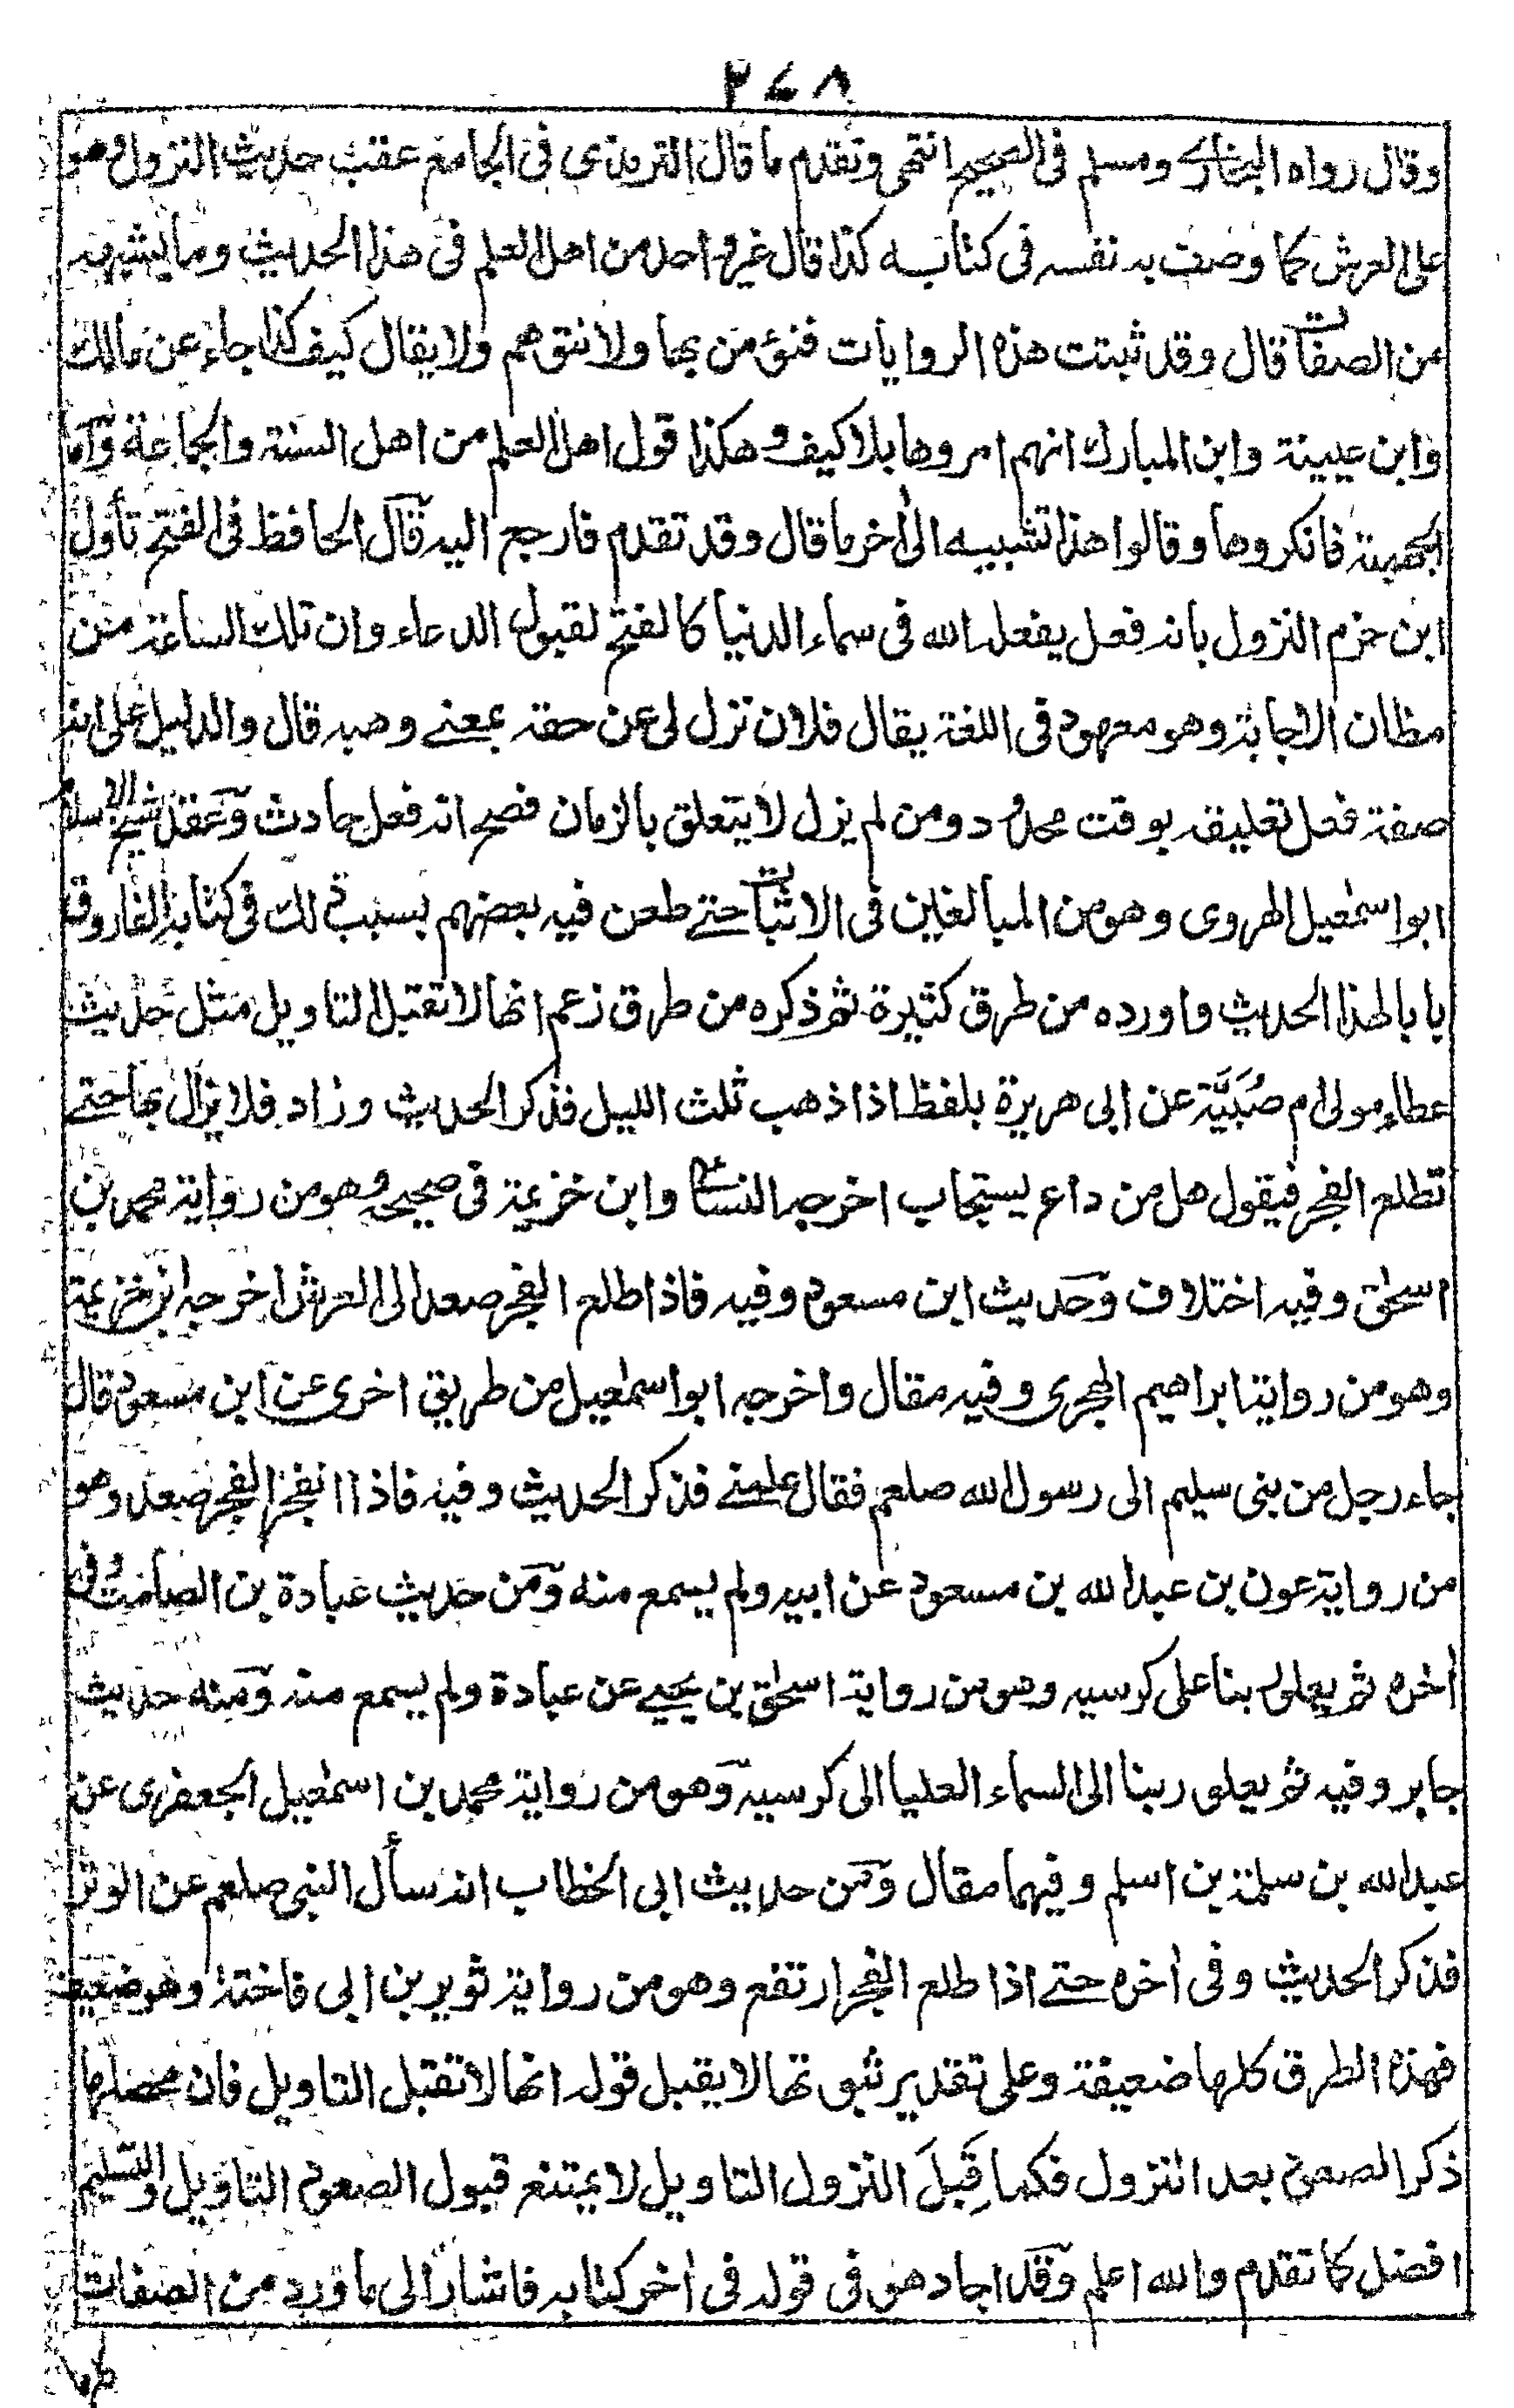 ٣٤٨
وقال رواه البخاري ومسلم في الصحيح انتهى وتقدم ما قال الترمذى فى الجامع عقب حديث النزول وهو
على العرش كما وصف به نفسه فى كتابه كذا قال غير واحد من اهل العلم فى هذا الحديث وما يشبهه
من الصفات قال وقد ثبتت هذه الروايات فنؤمن بها ولا نتوهم ولا يقال كيف كذا جاء عن مالك
وابن عيينة وابن المبارك انهم امروها بلا كيف وهكذا قول اهل العلم من اهل السنة والجماعة واما
الجهمية فانكروها وقالوا هذا تشبيه الى اٰخر ما قال وقد تقدم فارجع اليه قال الحافظ فى الفتح تأول
ابن حزم النزول بانه فعل يفعله الله فى سماء الدنيا كالفتح لقبول الدعاء وان تلك الساعة من
مظان الاجابة وهو معهود فى اللغة يقال فلان نزل لى عن حقه بمعنے وهبه قال والدليل على انه
صفة فعل تعليقه بوقت محدود ومن لم يزل لا يتعلق بالزمان فصح انه فعل حادث وعقد شيخ الاسلام
ابو اسمٰعيل الهروى وهو من المبالغين فى الاثبات حتے طعن فيه بعضهم بسبب ذلك فى كتابه الفاروق
بابا لهذا الحديث واورده من طرق كثيرة ثم ذكره من طرق زعم انها لا تقبل التاويل مثل حديث
عطاء مولى ام صُبَيَّة عن ابى هريرة بلفظ اذا ذهب ثلث الليل فذكر الحديث وزاد فلا يزال بها حتے
تطلع الفجر فيقول هل من داع يستجاب اخرجه النسائى وابن خزيمة فى صحيحه وهو من رواية محمد بن
اسحٰق وفيه اختلاف وحديث ابن مسعود وفيه فاذا طلع الفجر صعد الى العرش اخرجه ابن خزيمة
وهو من رواية ابراهيم الهجرى وفيه مقال واخرجه ابو اسمٰعيل من طريق اخرى عن ابن مسعود قال
جاء رجل من بنى سليم الى رسول الله صلعم فقال علمنے فذكر الحديث وفيه فاذا انفجر الفجر صعد وهو
من رواية عون بن عبد الله بن مسعود عن ابيه ولم يسمع منه ومن حديث عبادة بن الصامت وفى
اٰخره ثم يعلو ربنا على كرسيه وهو من رواية اسحٰق بن يحيے عن عبادة ولم يسمع منه ومنه حديث
جابر وفيه ثم يعلو ربنا الى السماء العليا الى كرسيه وهو من رواية محمد بن اسمٰعيل الجعفرى عن
عبد الله بن سلمة بن اسلم وفيهما مقال ومن حديث ابى الخطاب انه سأل النبى صلعم عن الوتر
فذكر الحديث وفى اٰخره حتے اذا طلع الفجر ارتفع وهو من رواية ثوير بن ابى فاختة وهو ضعيف
فهذه الطرق كلها ضعيفة وعلى تقدير ثبوتها لا يقبل قوله انها لا تقبل التاويل فان محصلها
ذكر الصعود بعد النزول فكما قَبِلَ النزول التاويل لا يمتنع قبول الصعود التاويل والتسليم
افضل كما تقدم والله اعلم وقد اجاد هو فى قوله فى اٰخر كتابه فاشار الى ما ورد من الصفات